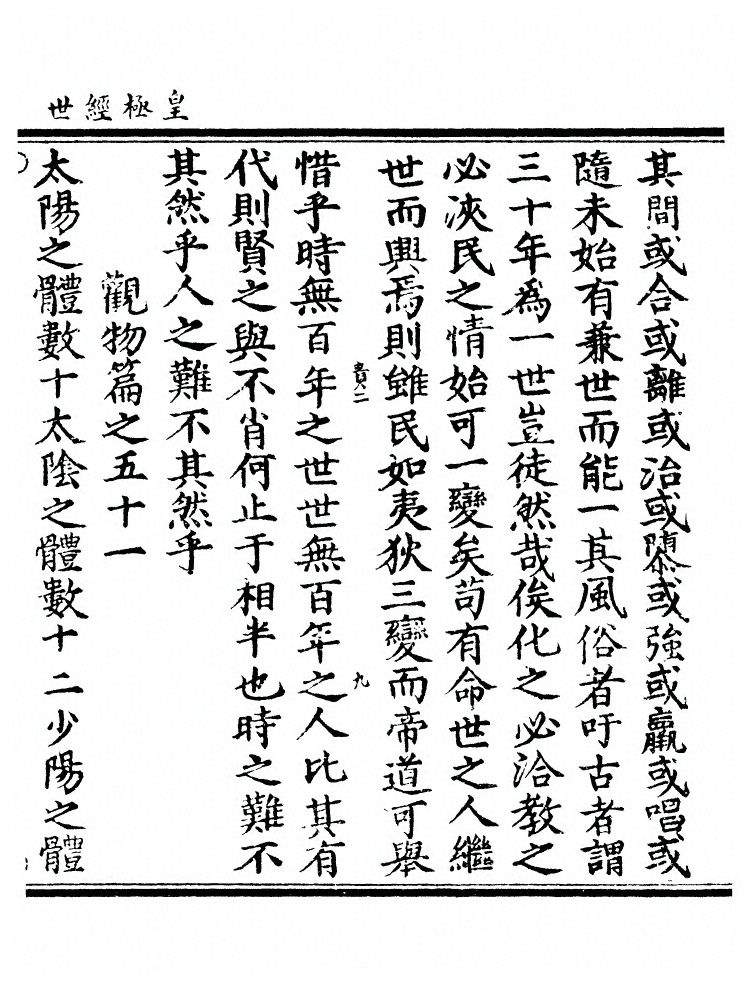 皇極經世
其間或合或離或治或隳或強或羸或唱或
隨未始有兼世而能一其風俗者吁古者謂
三十年為一世豈徒然哉俟化之必洽教之
必浹民之情始可一變矣苟有命世之人繼
世而興焉則雖民如夷狄三變而帝道可舉
貴二
九
惜乎時無百年之世世無百年之人比其有
代則賢之與不肖何止于相半也時之難不
其然乎人之難不其然乎
觀物篇之五十一
太陽之體數十太陰之體數十二少陽之體